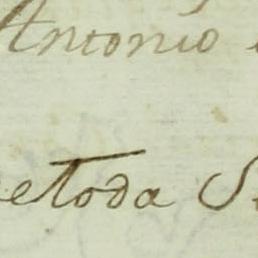 Antonio
e toda S